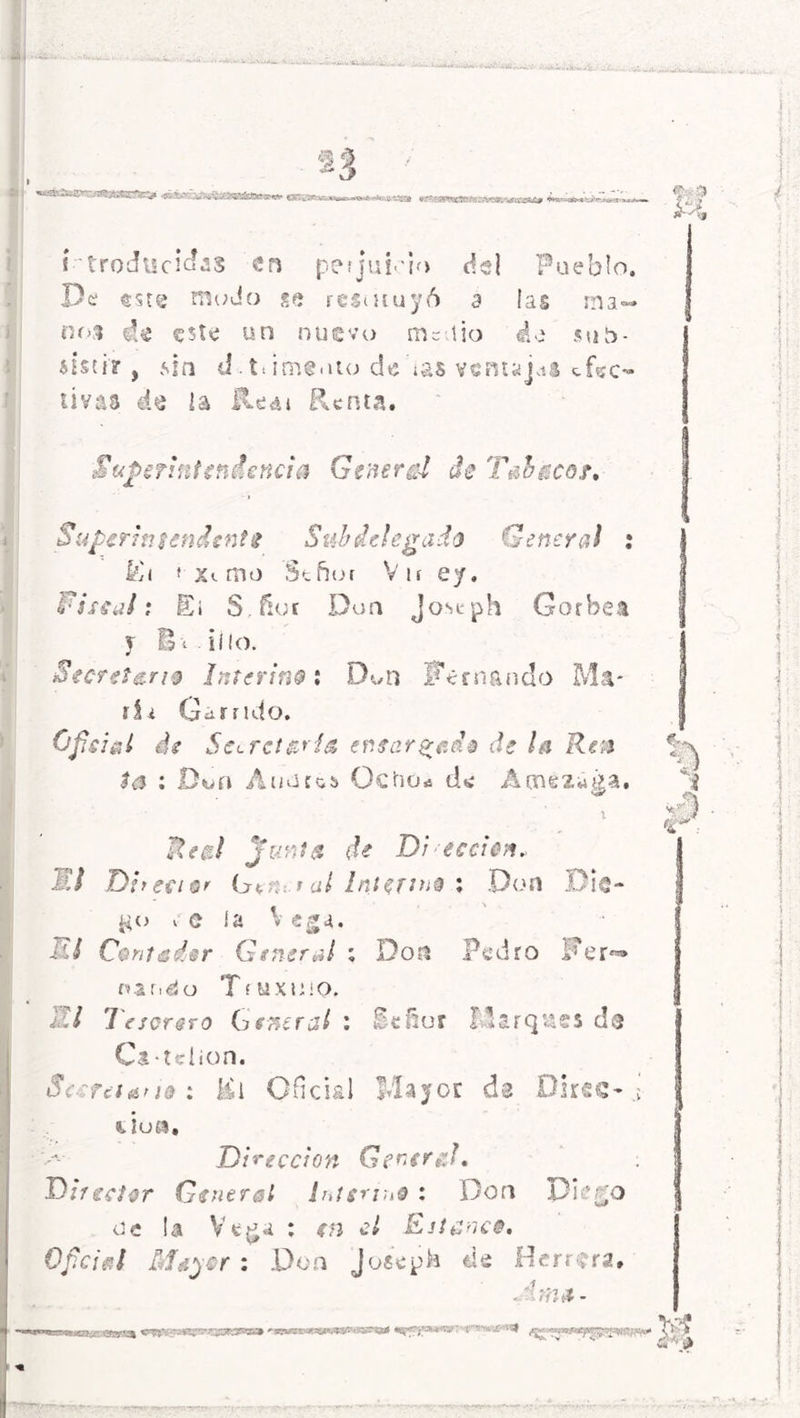 23
introducidas en perjuicio del Pueblo.
De este modo se restituyó a las ma-
nos de este un nuevo medio de sub-
sistir, sin detrimento de las ventajas efec-
tivas de la Real Renta.
Superintendencia General de Tabacos.
Superintendente Subdelegado General :
El Exc.mo Señor Virrey.
Fiscal: El Señor Don Joseph Gorbea
y
Secretario Interino: Don Fernando Ma-
ría Garrido.
Oficial de Secretaría encargado de la Ren
ta : Don Andres Ochoa de Amezaga.
Real Junta de Direccion.
El Director General Interino : Don Die-
go de la Vega.
El Contador General : Don Pedro Fer-
nando Truxillo.
El Tesorero General : Señor Marques de
Castellon.
Secretario : El Oficial Mayor de Direc-
cion.
Direccion General.
Director General Interino : Don Diego
de la Vega : en el Estanco.
Oficial Mayor : Don Joseph de Herrera,
Ama-